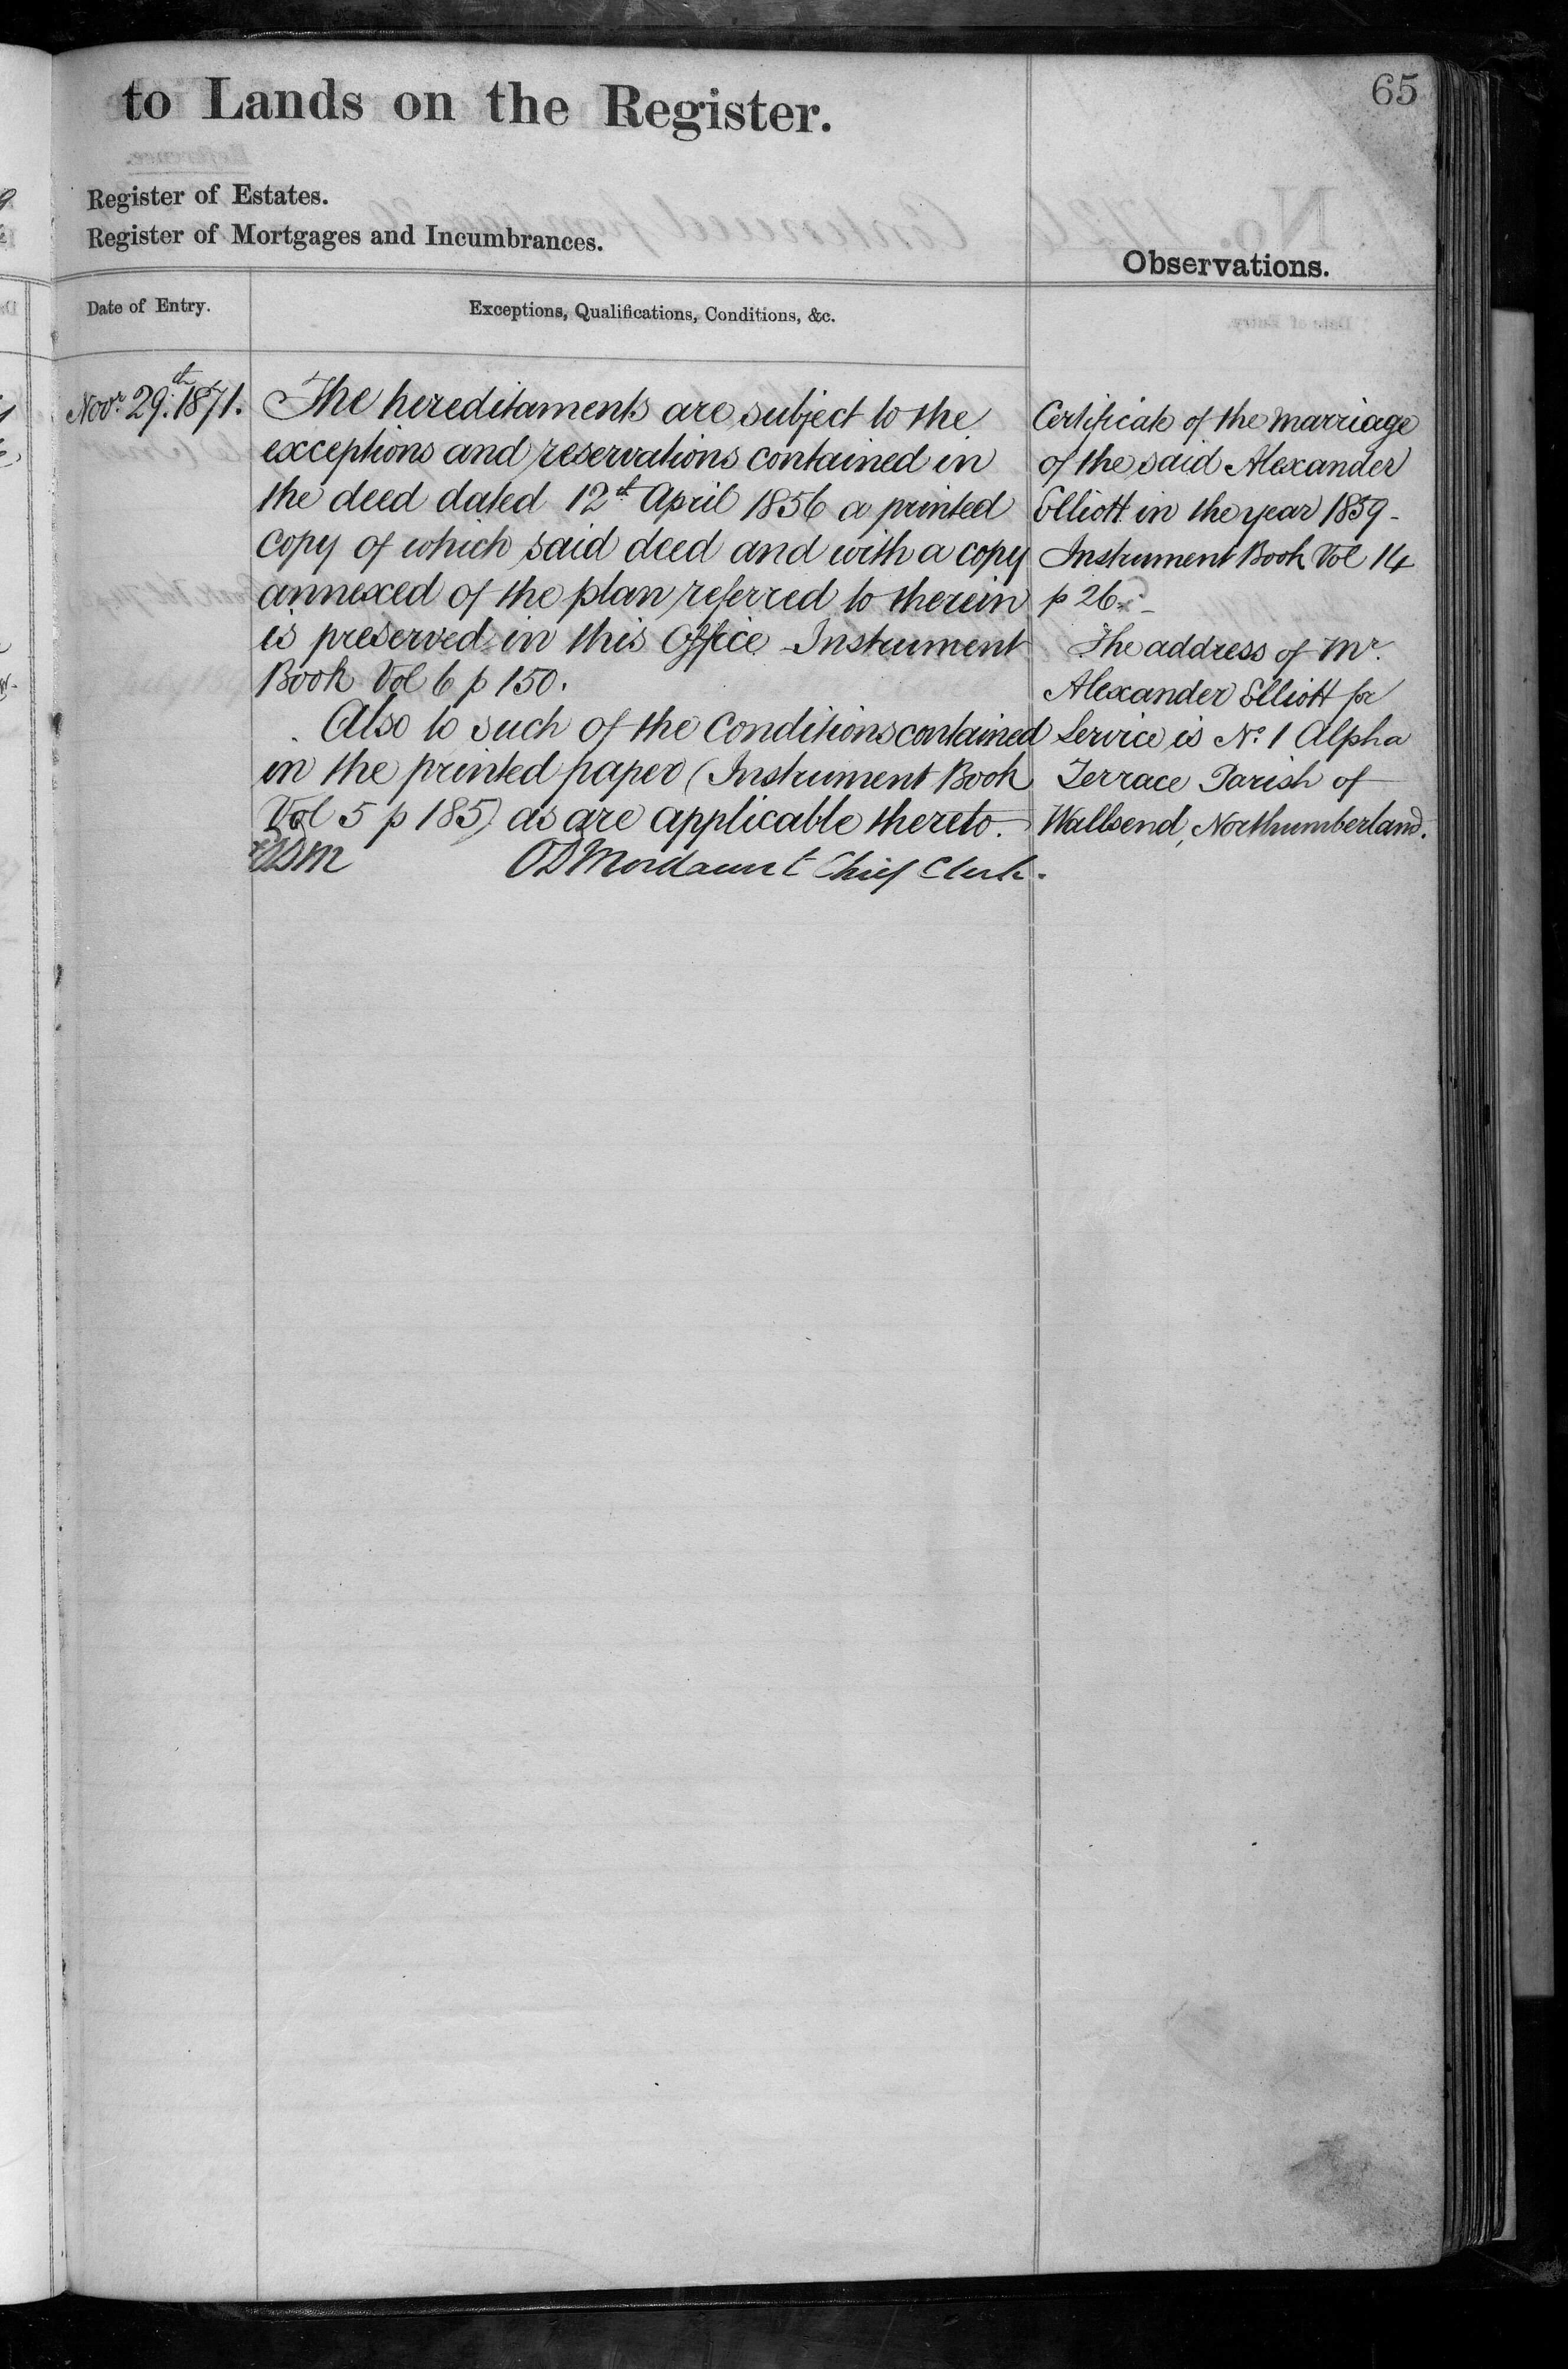 65
to Lands on the Register.
Register of Estates.
Register of Mortgages and Incumbrances.
Observations.
Date of Entry.
Exceptions, Qualifications, Conditions, &c.
Novr. 29th. 1871.
The hereditaments are subject to the
exceptions and reservations contained in
the deed dated 12th April 1856 a printed
copy of which said deed and with a copy
annexed of the plan referred to therein
is preserved in this Office Instrument
Book Vol 6 p 150.
Also to such of the Conditions contained
in the printed paper (Instrument Book
Vol 5 p 185) as are applicable thereto.
ODMordaunt Chief Clerk.
Certificate of the marriage
of the said Alexander
Elliott in the year 1859 -
Instrument Book Vol 14
p 26
The address of Mr.
Alexander Elliott for
Service is No. 1 Alpha
Terrace Parish of
Wallsend, Northumberland.